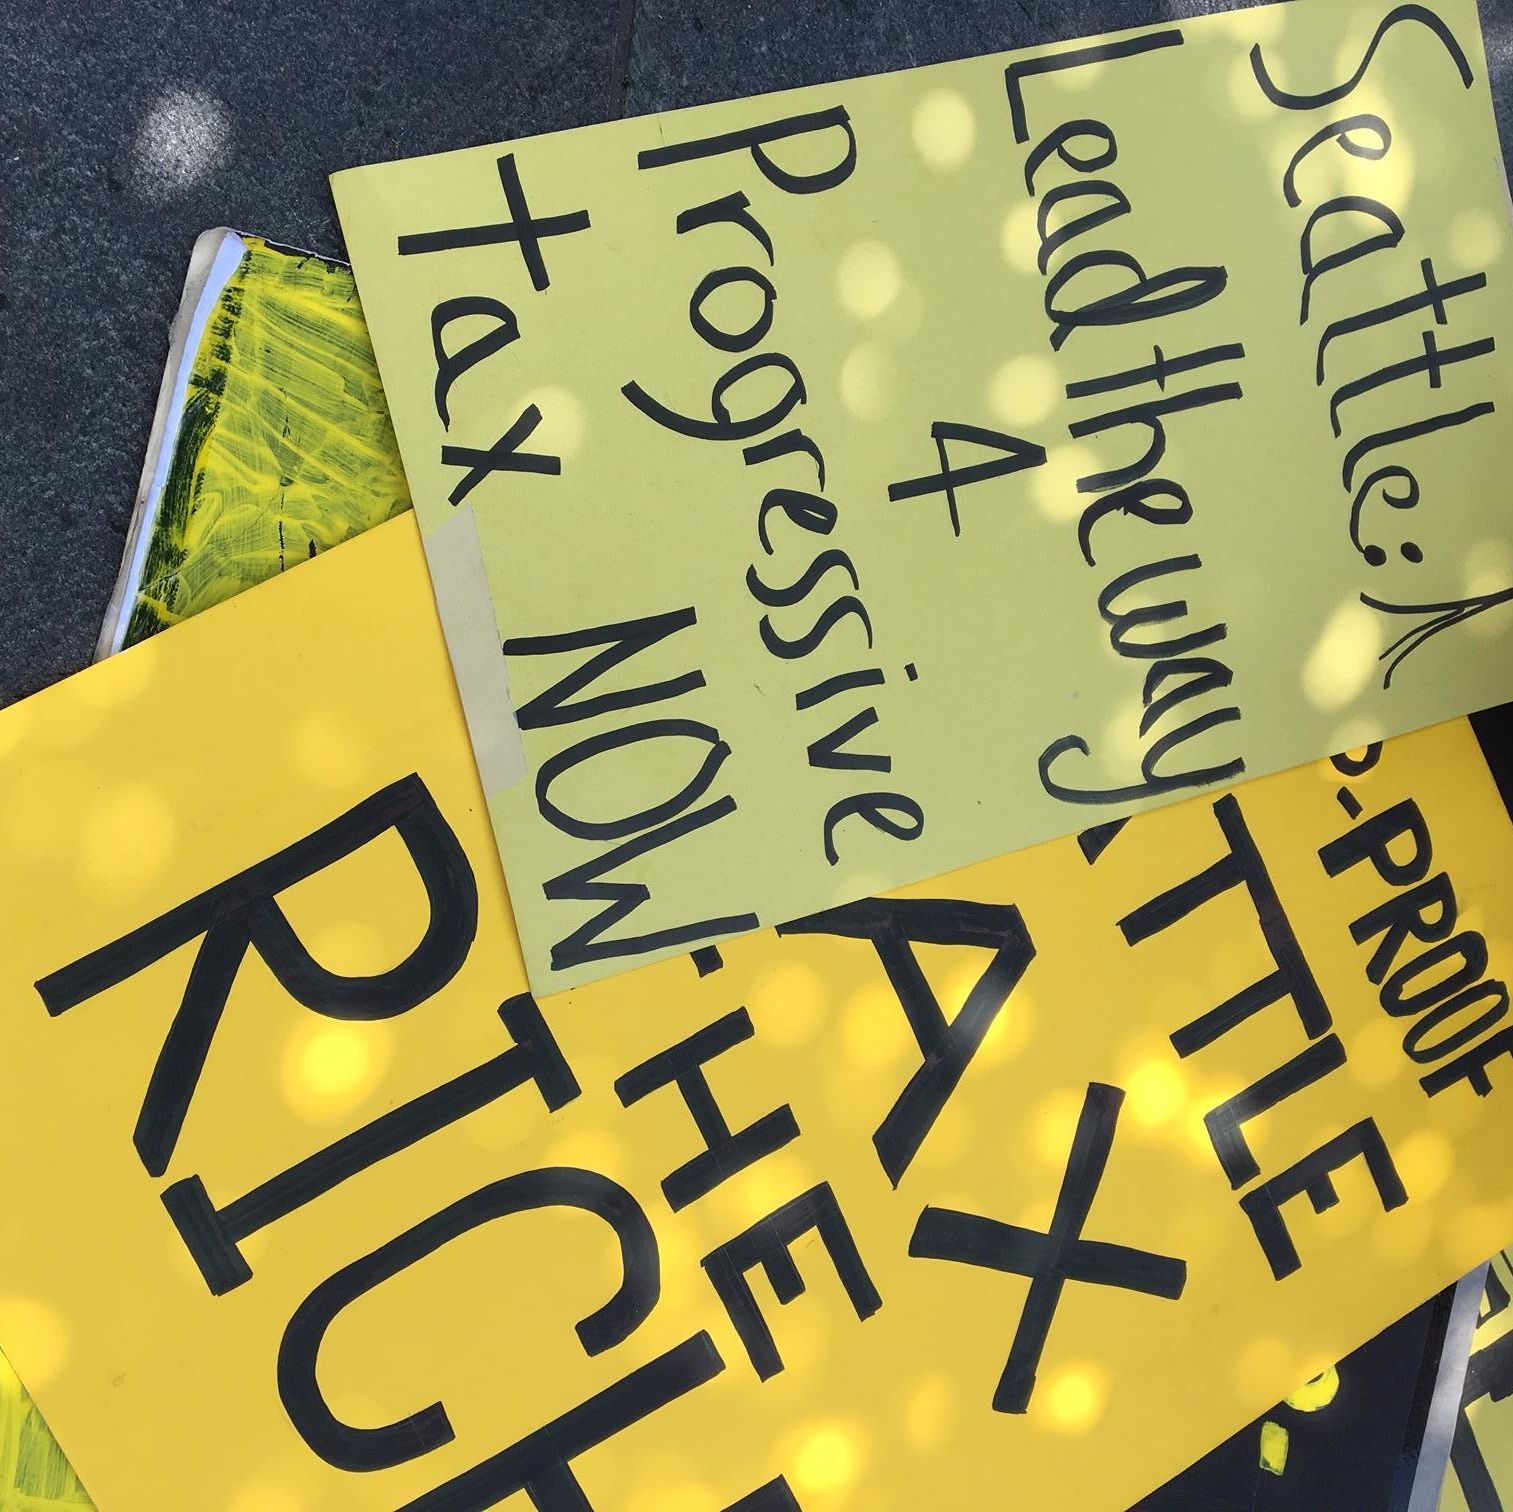 Seattle:
Lead the way
4
Progressive
tax NOW
P-PROOF
ATTLE
AX
THE
RICH